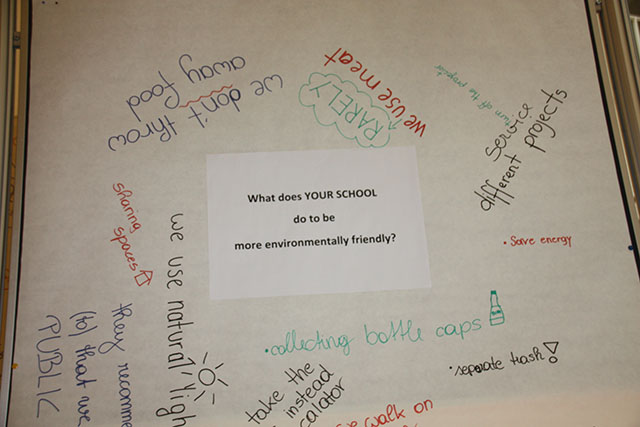 we don't throw
away food
we use meat
RARELY
turn off the projector
service
different projects
What does YOUR SCHOOL
do to be
more environmentally friendly?
sharing
spaces
we use natural
• Save energy
• collecting bottle caps
• separate trash!
they
(to) that we
PUBLIC
take the
instead
walk on